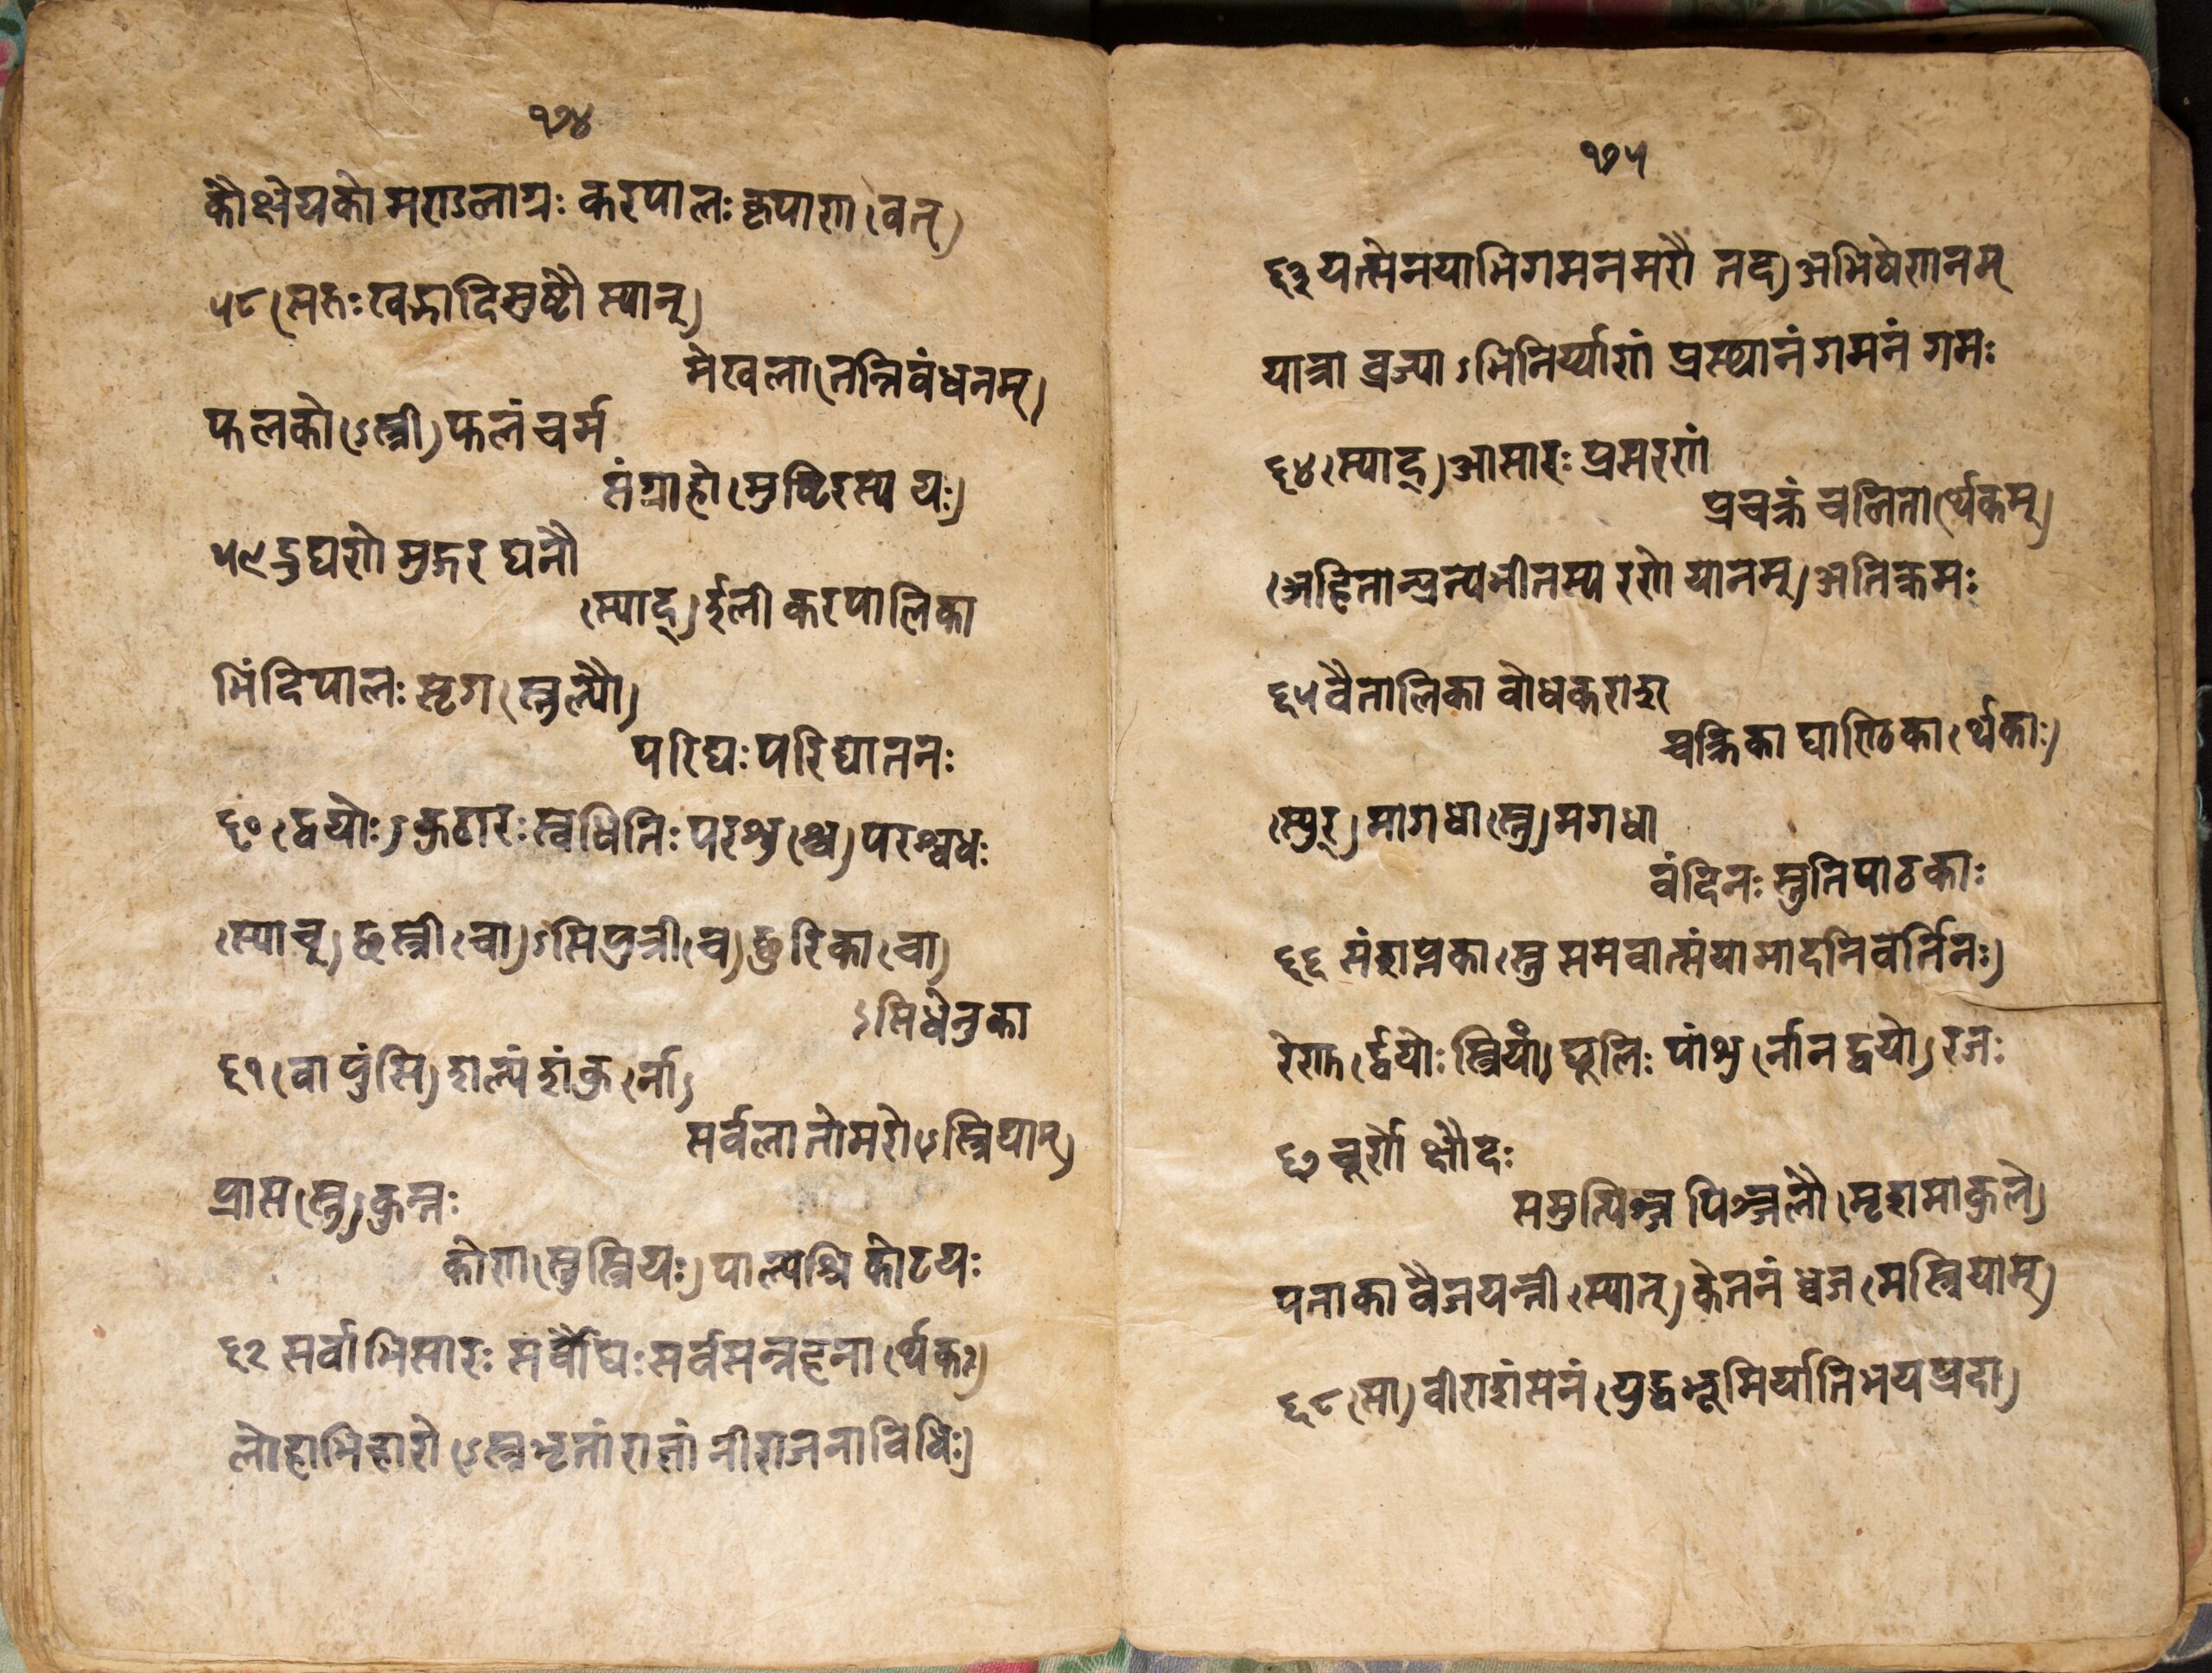 १७४
कौक्षेयको मण्डलाग्रः करपालः कृपाण(वत्)
५८(त्सरुः खड्गादिमुष्टौ स्यात्)
मेखला(तन्निबंधनम्)
फलको(ऽस्त्री)फलं चर्म
संग्राहो(मुष्टिरस्य यः)
५९ द्रुघणो मुद्गर घनौ
(स्याद्)ईली करपालिका
भिंदिपालः सृग(स्तुल्यौ)
परिघः परिघातनः
६०(द्वयोः)कुठारः स्वधितिः परशु(श्च)परश्वधः
(स्याच्)छस्त्री(चा)ऽसिपुत्री(च)छुरिका(चा)
ऽसिधेनुका
६१(वा पुंसि)शल्यं शंकु(र्ना)
सर्वला तोमरो(ऽस्त्रियाम्)
प्रास(स्तु)कुन्तः
कोण(स्तु स्त्रियः)पाल्यश्रि कोटयः
६२ सर्वाभिसारः सर्वौघः सर्वसन्नहना(र्थकः)
लोहाभिहारो(ऽस्त्रभृतां राज्ञां नीराजनाविधिः)
१७५
६३ यत्सेनयाभिगमनमरौ तद)अभिषेणनम्
यात्रा व्रज्या ऽभिनिर्य्याणं प्रस्थानं गमनं गमः
६४(स्याद्)आसारः प्रसरणं
प्रचक्रं चलिता(र्थकम्)
(अहितान्प्रत्यभीतस्य रणे यानम्)अतिक्रमः
६५ वैतालिका बोधकराश्
चाक्रिका घाण्टिका(र्थकाः)
(स्युर्)मागधा(स्तु)मगधा
वंदिनः स्तुतिपाठकाः
६६ संशप्तका(स्तु समयात्संग्रामादनिवर्तिनः)
रेणु(र्द्वयोः स्त्रियां)धूलिः पांशु(र्नानद्वयो)रजः
६७ चूर्णे क्षोदः
समुत्पिञ्ज पिञ्जलौ(भृशमाकुले)
पताका वैजयन्ती(स्यात्)केतनं ध्वज(मस्त्रियाम्)
६८(सा)वीराशंसनं(युद्धभूमिर्यातिभयप्रदा)